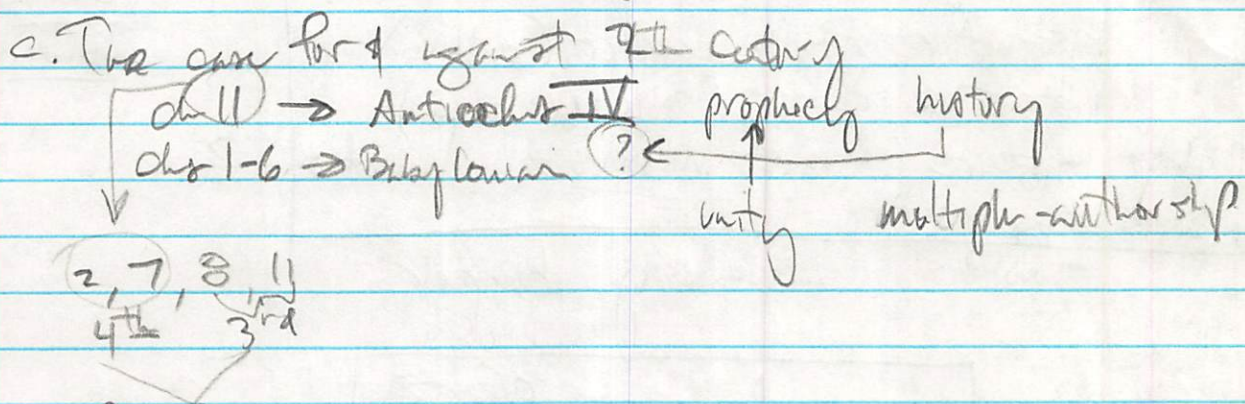 c. The case for & against 2th century
ch 11 → Antiochus IV prophecy history
chs 1-6 → Babylonian ?
unity multiple-authorship
2, 7, 8, 11
4th 3rd